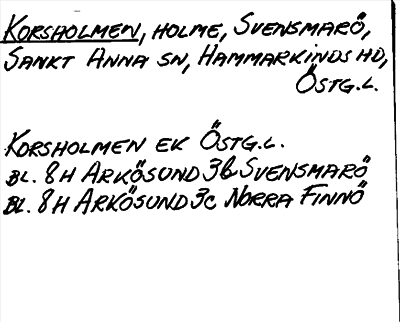 KORSHOLMEN, HOLME, SVENSMARÖ,
SANKT ANNA SN, HAMMARKINDS HD,
ÖSTG.L.
KORSHOLMEN EK ÖSTG.L.
BL. 8H ARKÖSUND 3b SVENSMARÖ
BL. 8H ARKÖSUND 3c NORRA FINNÖ